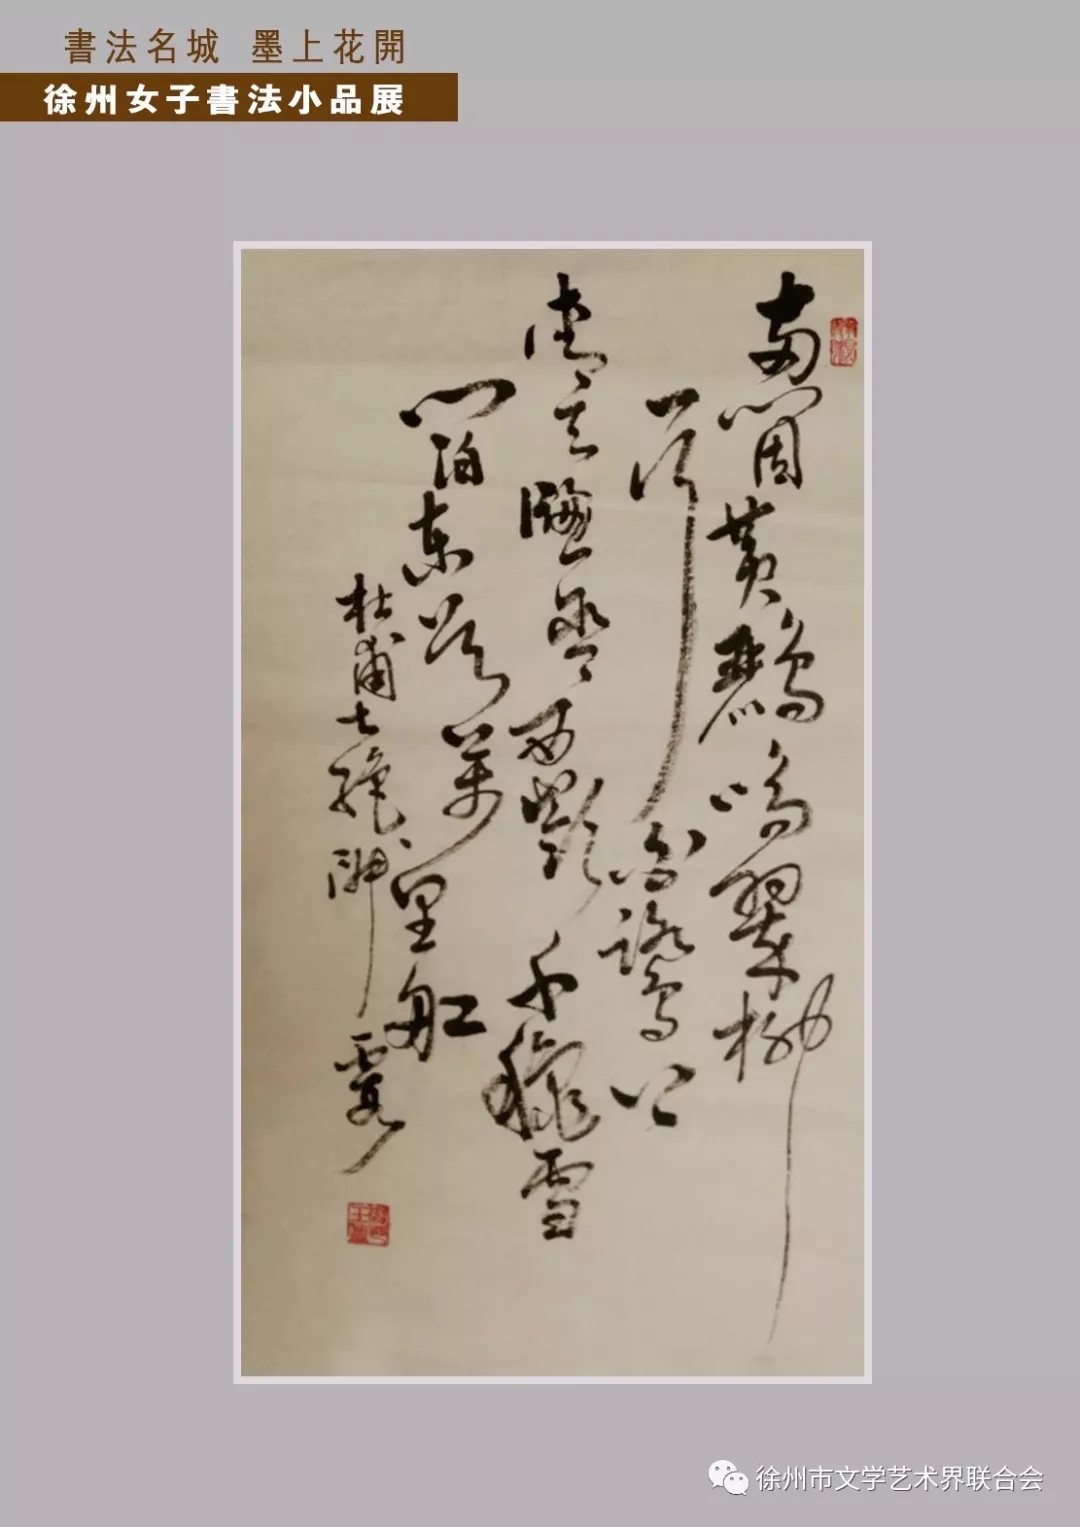 書法名城 墨上花開
徐州女子書法小品展
兩箇黃鸝鳴翠柳
一行白鷺上
青天牕含西嶺千穐雪
門泊東吳萬里舡
杜甫七絕
徐州市文学艺术界联合会